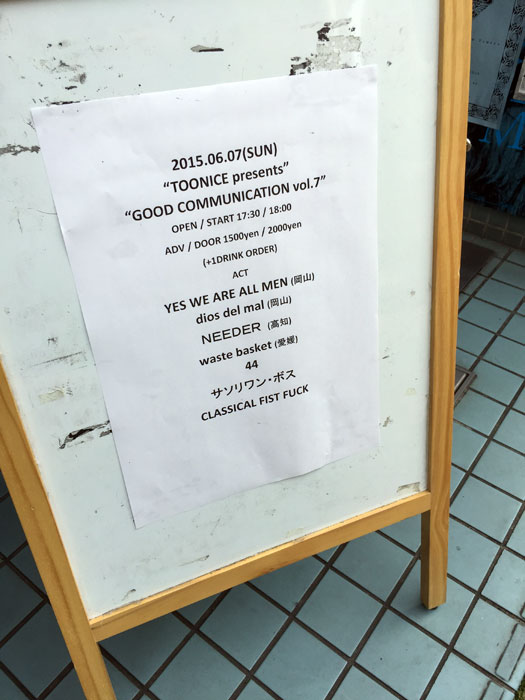 2015.06.07(SUN)
“TOONICE presents”
“GOOD COMMUNICATION vol.7”
OPEN / START 17:30 / 18:00
ADV / DOOR 1500yen / 2000yen
(+1DRINK ORDER)
ACT
YES WE ARE ALL MEN (岡山)
dios del mal (岡山)
NEEDER (高知)
waste basket (愛媛)
44
サソリワン・ボス
CLASSICAL FIST FUCK